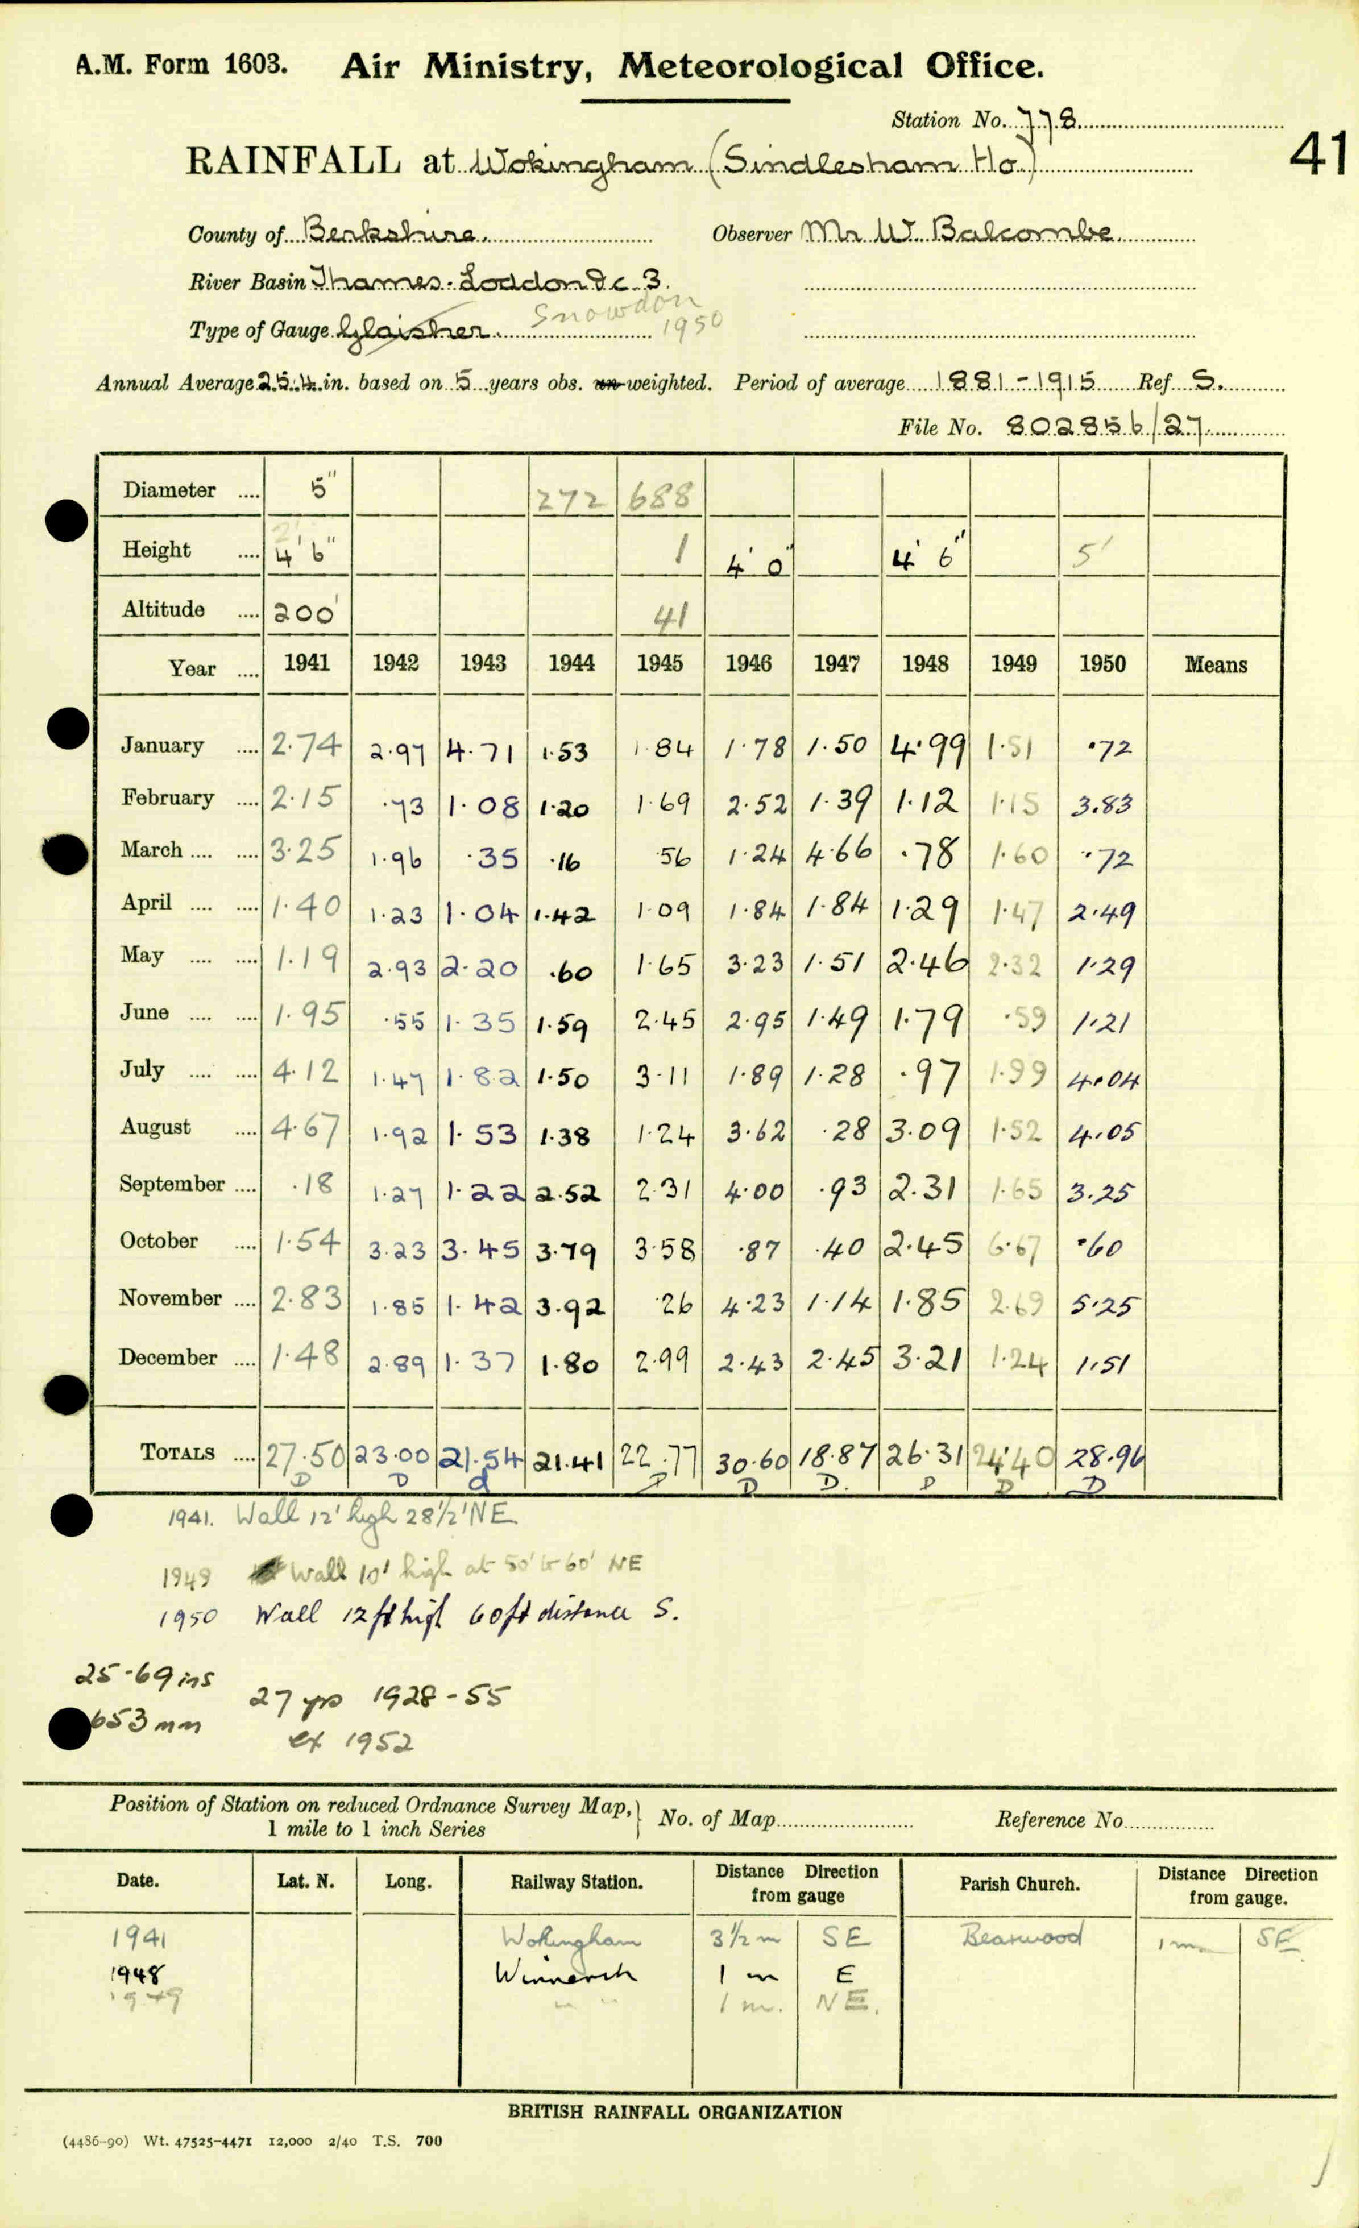 A.M. Form 1603. Air Ministry, Meteorological Office.
Station No. 778
41
RAINFALL at Wokingham (Sindlesham Ho.)
County of Berkshire. Observer Mr W. Balcombe.
River Basin Thames. Loddon &c 3.
Type of Gauge Glaisher. Snowdon 1950
Annual Average 25.4 in. based on 5 years obs. un-weighted. Period of average 1881-1915 Ref S.
File No. 802856/27
Diameter .... 5" 272 688
Height .... 2' 4' 6" 1 4' 0" 4' 6" 5'
Altitude .... 200' 41
Year .... 1941 1942 1943 1944 1945 1946 1947 1948 1949 1950 Means
January .... 2.74 2.97 4.71 1.53 1.84 1.78 1.50 4.99 1.51 .72
February .... 2.15 .73 1.08 1.20 1.69 2.52 1.39 1.12 1.15 3.83
March .... .... 3.25 1.96 .35 .16 .56 1.24 4.66 .78 1.60 .72
April .... .... 1.40 1.23 1.04 1.42 1.09 1.84 1.84 1.29 1.47 2.49
May .... .... 1.19 2.93 2.20 .60 1.65 3.23 1.51 2.46 2.32 1.29
June .... .... 1.95 .55 1.35 1.59 2.45 2.95 1.49 1.79 .59 1.21
July .... .... 4.12 1.47 1.82 1.50 3.11 1.89 1.28 .97 1.99 4.04
August .... 4.67 1.92 1.53 1.38 1.24 3.62 .28 3.09 1.52 4.05
September .... .18 1.27 1.22 2.52 2.31 4.00 .93 2.31 1.65 3.25
October .... 1.54 3.23 3.45 3.79 3.58 .87 .40 2.45 6.67 .60
November .... 2.83 1.85 1.42 3.92 .26 4.23 1.14 1.85 2.69 5.25
December .... 1.48 2.89 1.37 1.80 2.99 2.43 2.45 3.21 1.24 1.51
TOTALS .... 27.50 23.00 21.54 21.41 22.77 30.60 18.87 26.31 24.40 28.96
D D d D D D. D D D
1941. Wall 12' high 28½' NE
1949 Wall 10' high at 50' to 60' NE
1950 Wall 12 ft high 60 ft distance S.
25.69 ins 27 yrs 1928-55
653 mm ex 1952
Position of Station on reduced Ordnance Survey Map, 1 mile to 1 inch Series } No. of Map Reference No
Date. Lat. N. Long. Railway Station. Distance Direction from gauge Parish Church. Distance Direction from gauge.
1941 Wokingham 3½ m SE Bearwood 1 m SE
1948 Winnersh 1 m E
1949 " " 1 m. NE.
BRITISH RAINFALL ORGANIZATION
(4486-90) Wt. 47525-4471 12,000 2/40 T.S. 700